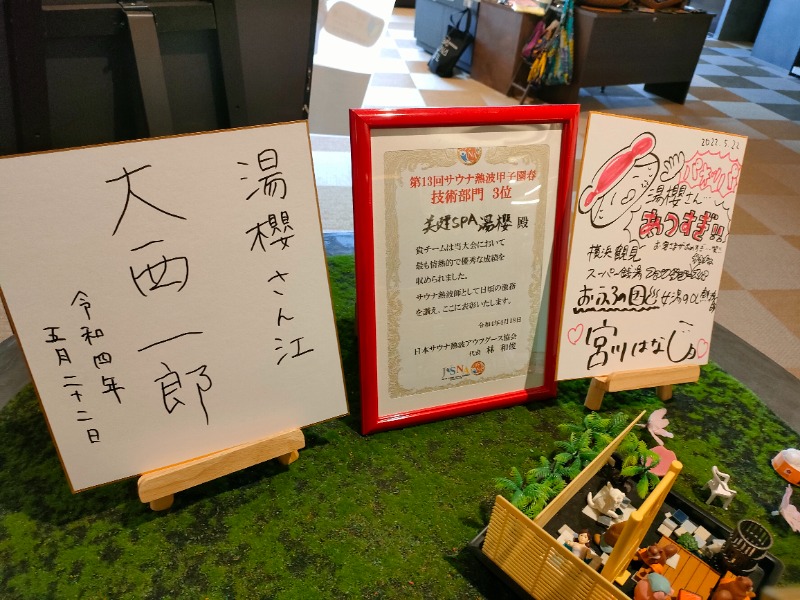 湯櫻さん江
大西一郎
令和四年
五月二十二日
第13回サウナ熱波甲子園春
技術部門 3位
美健SPA湯櫻 殿
貴チームは当大会において
最も情熱的で優秀な成績を
収められました。
サウナ熱波師として日頃の激務
を讃え、ここに表彰いたします。
令和4年4月18日
日本サウナ熱波アウフグース協会
代表 林 和俊
2022.5.22
湯櫻さん…
あつすぎ!!
横浜鶴見
スーパー銭湯
おふろの国
女湯のOL
宮川はなこ